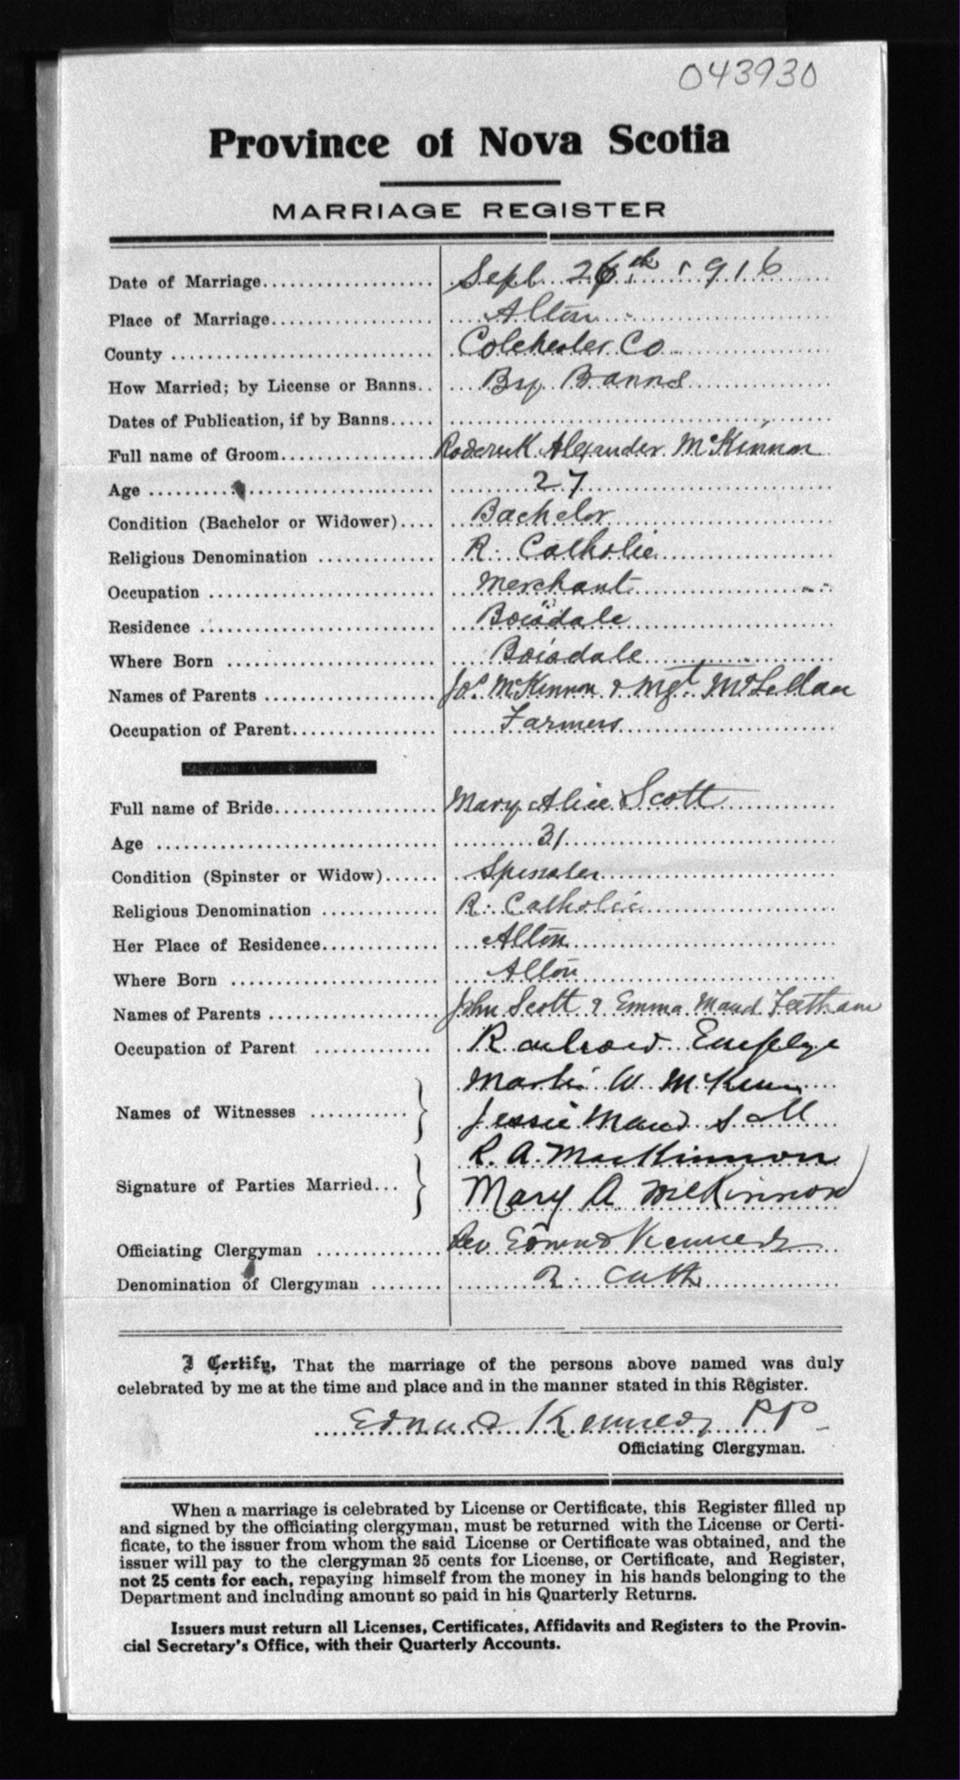 043930
Province of Nova Scotia
MARRIAGE REGISTER
Date of Marriage Sept 26th 1916
Place of Marriage Alton
County Colchester Co
How Married; by License or Banns By Banns
Dates of Publication, if by Banns
Full name of Groom Roderick Alexander McKinnon
Age 27
Condition (Bachelor or Widower) Bachelor
Religious Denomination R. Catholic
Occupation Merchant
Residence Boisdale
Where Born Boisdale
Names of Parents Jos McKinnon & Mgt McLellan
Occupation of Parent Farmers
Full name of Bride Mary Alice Scott
Age 31
Condition (Spinster or Widow) Spinster
Religious Denomination R. Catholic
Her Place of Residence Alton
Where Born Alton
Names of Parents John Scott & Emma Maud
Occupation of Parent Railroad Employe
Names of Witnesses W McKinnon
Jessie Maud
Signature of Parties Married R. A. MacKinnon
Mary A. McKinnon
Officiating Clergyman Rev Edmund Kennedy
Denomination of Clergyman R. Cath
I Certify, That the marriage of the persons above named was duly
celebrated by me at the time and place and in the manner stated in this Register.
Edmund Kennedy PP
Officiating Clergyman.
When a marriage is celebrated by License or Certificate, this Register filled up
and signed by the officiating clergyman, must be returned with the License or Certi-
ficate, to the issuer from whom the said License or Certificate was obtained, and the
issuer will pay to the clergyman 25 cents for License, or Certificate, and Register,
not 25 cents for each, repaying himself from the money in his hands belonging to the
Department and including amount so paid in his Quarterly Returns.
Issuers must return all Licenses, Certificates, Affidavits and Registers to the Provin-
cial Secretary's Office, with their Quarterly Accounts.